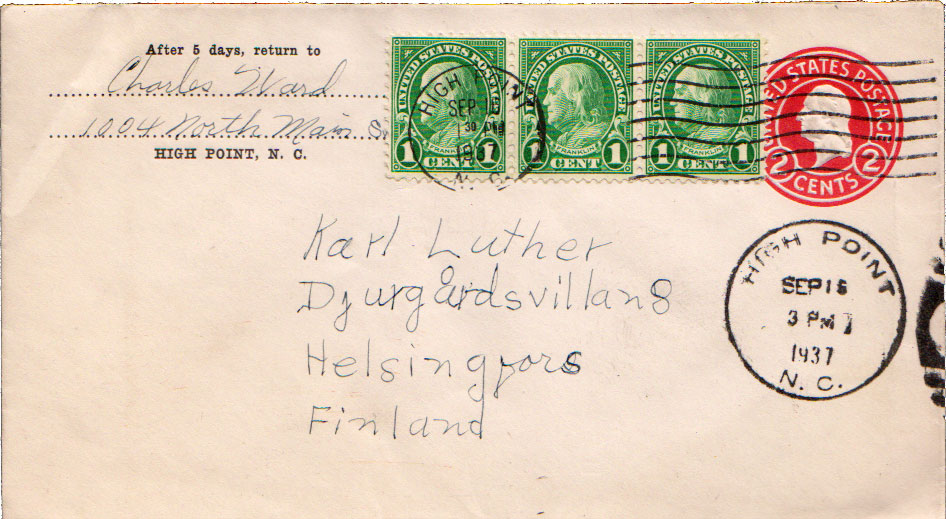 After 5 days, return to
Charles Ward
1004 North Main S.
HIGH POINT, N. C.
UNITED STATES POSTAGE
FRANKLIN
1 CENT 1
UNITED STATES POSTAGE
FRANKLIN
1 CENT 1
UNITED STATES POSTAGE
FRANKLIN
1 CENT 1
HIGH POIN
SEP 15
30 PM
1937
N. C.
UNITED STATES POSTAGE
2 CENTS 2
Karl Luther
Djurgårdsvillan 8
Helsingfors
Finland
HIGH POINT
SEP 15
3 PM
1937
N. C.